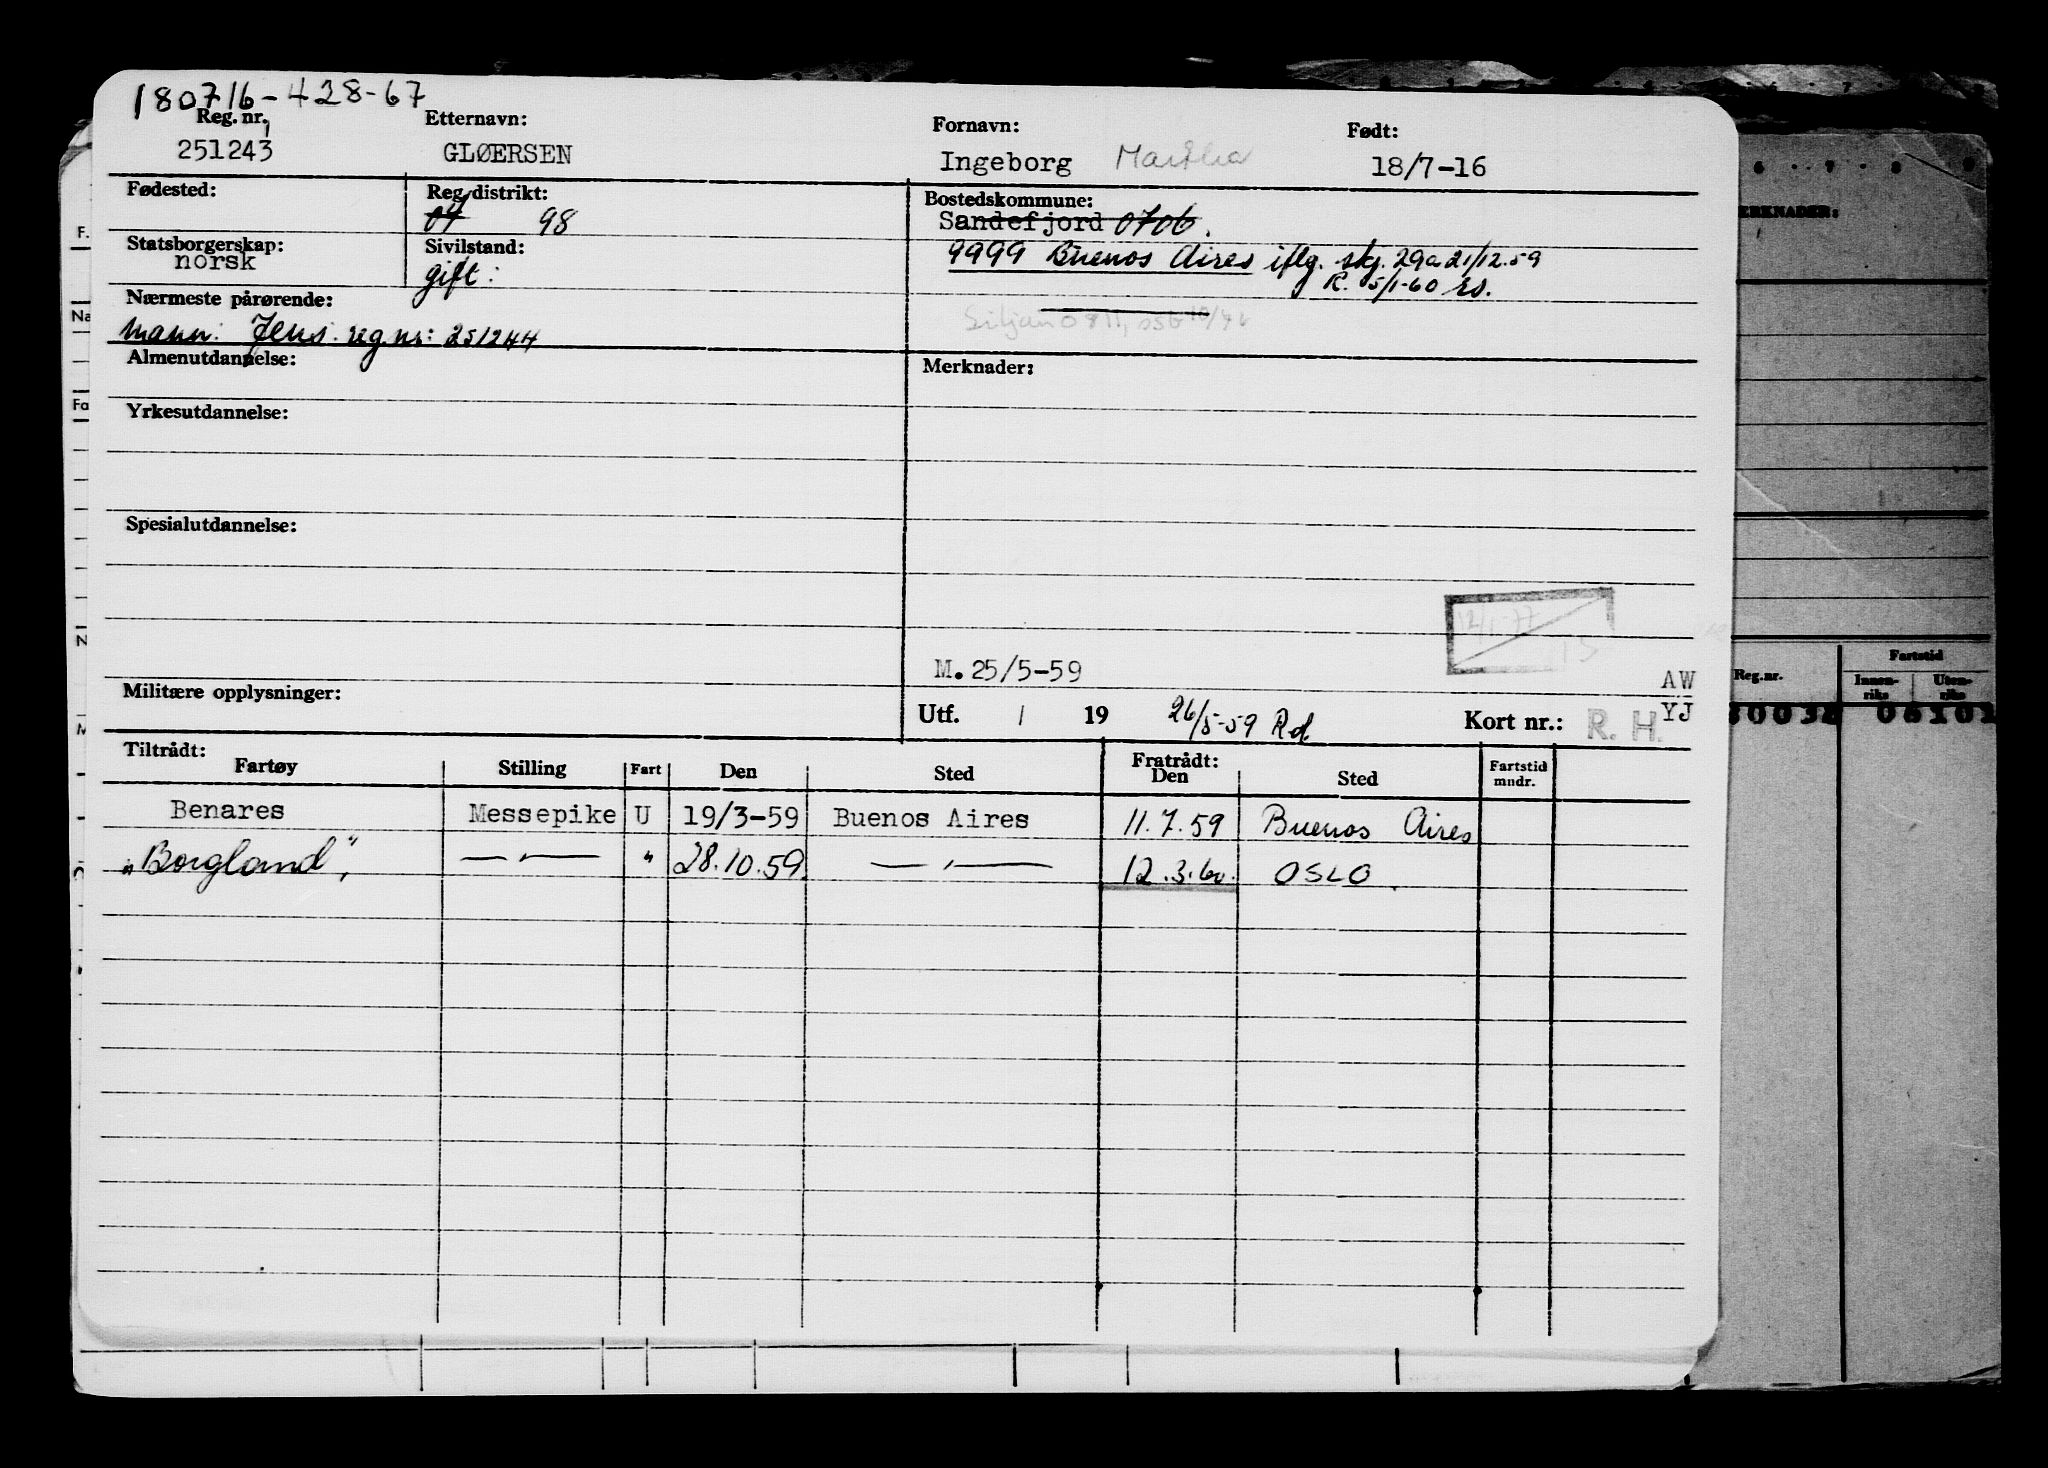 180716-428-67
Reg. nr. Etternavn: Fornavn: Født:
251243 GLØERSEN Ingeborg Martha 18/7-16
Fødested: Reg. distrikt: Bostedskommune:
04 98 Sandefjord 0706.
Statsborgerskap: Sivilstand:
norsk gift: 9999 Buenos Aires iflg. skj. 29a 21/12.59
R. 15/1-60 Es.
Nærmeste pårørende:
Mann: Jens: reg nr: 251244
Siljan 0811,
Almenutdannelse: Merknader:
Yrkesutdannelse:
Spesialutdannelse:
12/1-77
15
M. 25/5-59 AW
Militære opplysninger: YJ
Utf. / 19 26/5-59 Rd. Kort nr.: R. H.
Tiltrådt: Fratrådt:
Fartøy Stilling Fart Den Sted Den Sted Fartstid mndr.
Benares Messepike U 19/3-59 Buenos Aires 11.7.59 Buenos Aires
"Borgland", —"— " 28.10.59. —"— 12.3.60. OSLO.
F.
Na
Fa
N
M
6 7 8 9
ERKNADER:
Reg.nr. Fartstid
Innen-riks Uten-riks
30038 06101